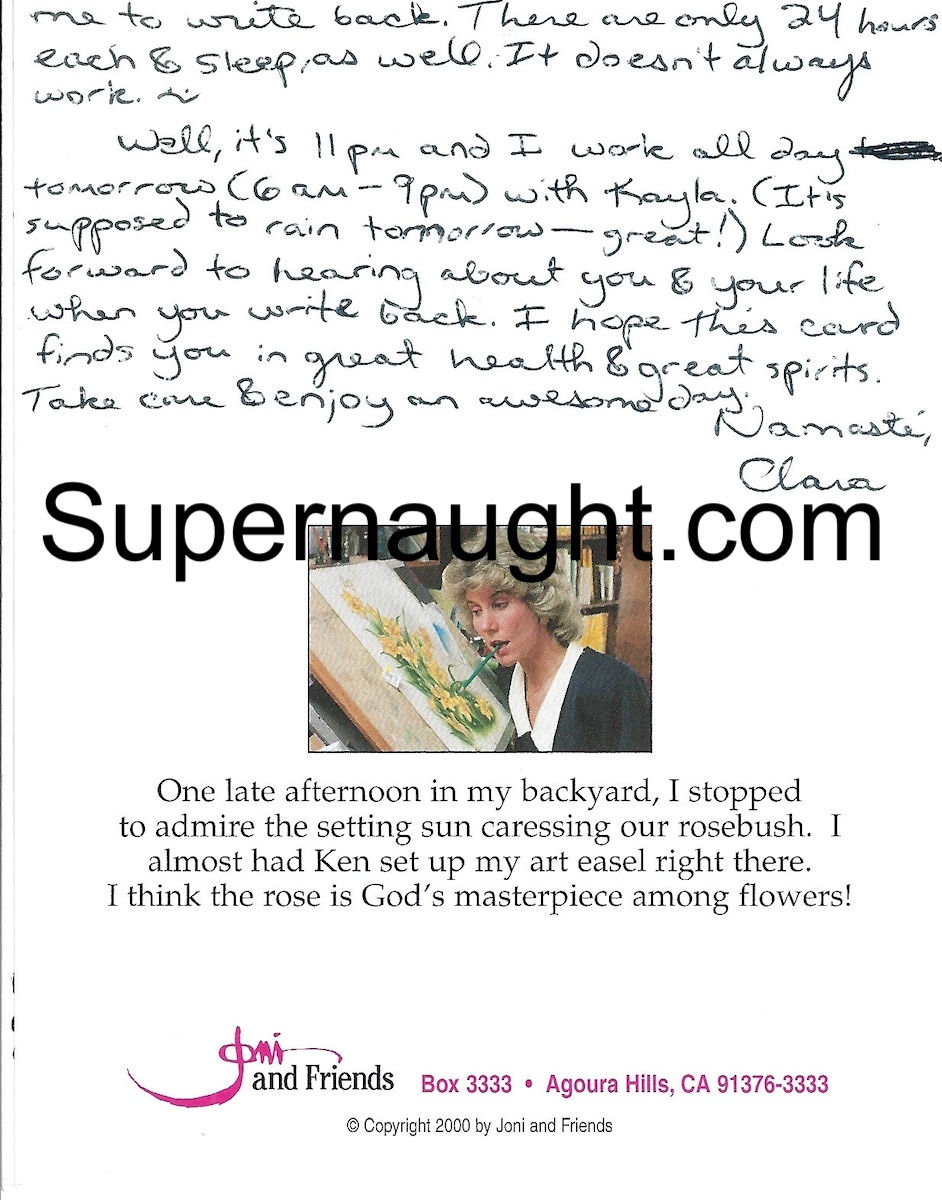 me to write back. There are only 24 hours
each & sleep, as well. It doesn't always
work.
Well, it's 11 pm and I work all day
tomorrow (6 am - 9 pm) with Kayla. (It's
supposed to rain tomorrow — great!) Look
forward to hearing about you & your life
when you write back. I hope this card
finds you in great health & great spirits.
Take care & enjoy an awesome day.
Namasté,
Clara
Supernaught.com
One late afternoon in my backyard, I stopped
to admire the setting sun caressing our rosebush. I
almost had Ken set up my art easel right there.
I think the rose is God's masterpiece among flowers!
Joni
and Friends Box 3333 • Agoura Hills, CA 91376-3333
© Copyright 2000 by Joni and Friends